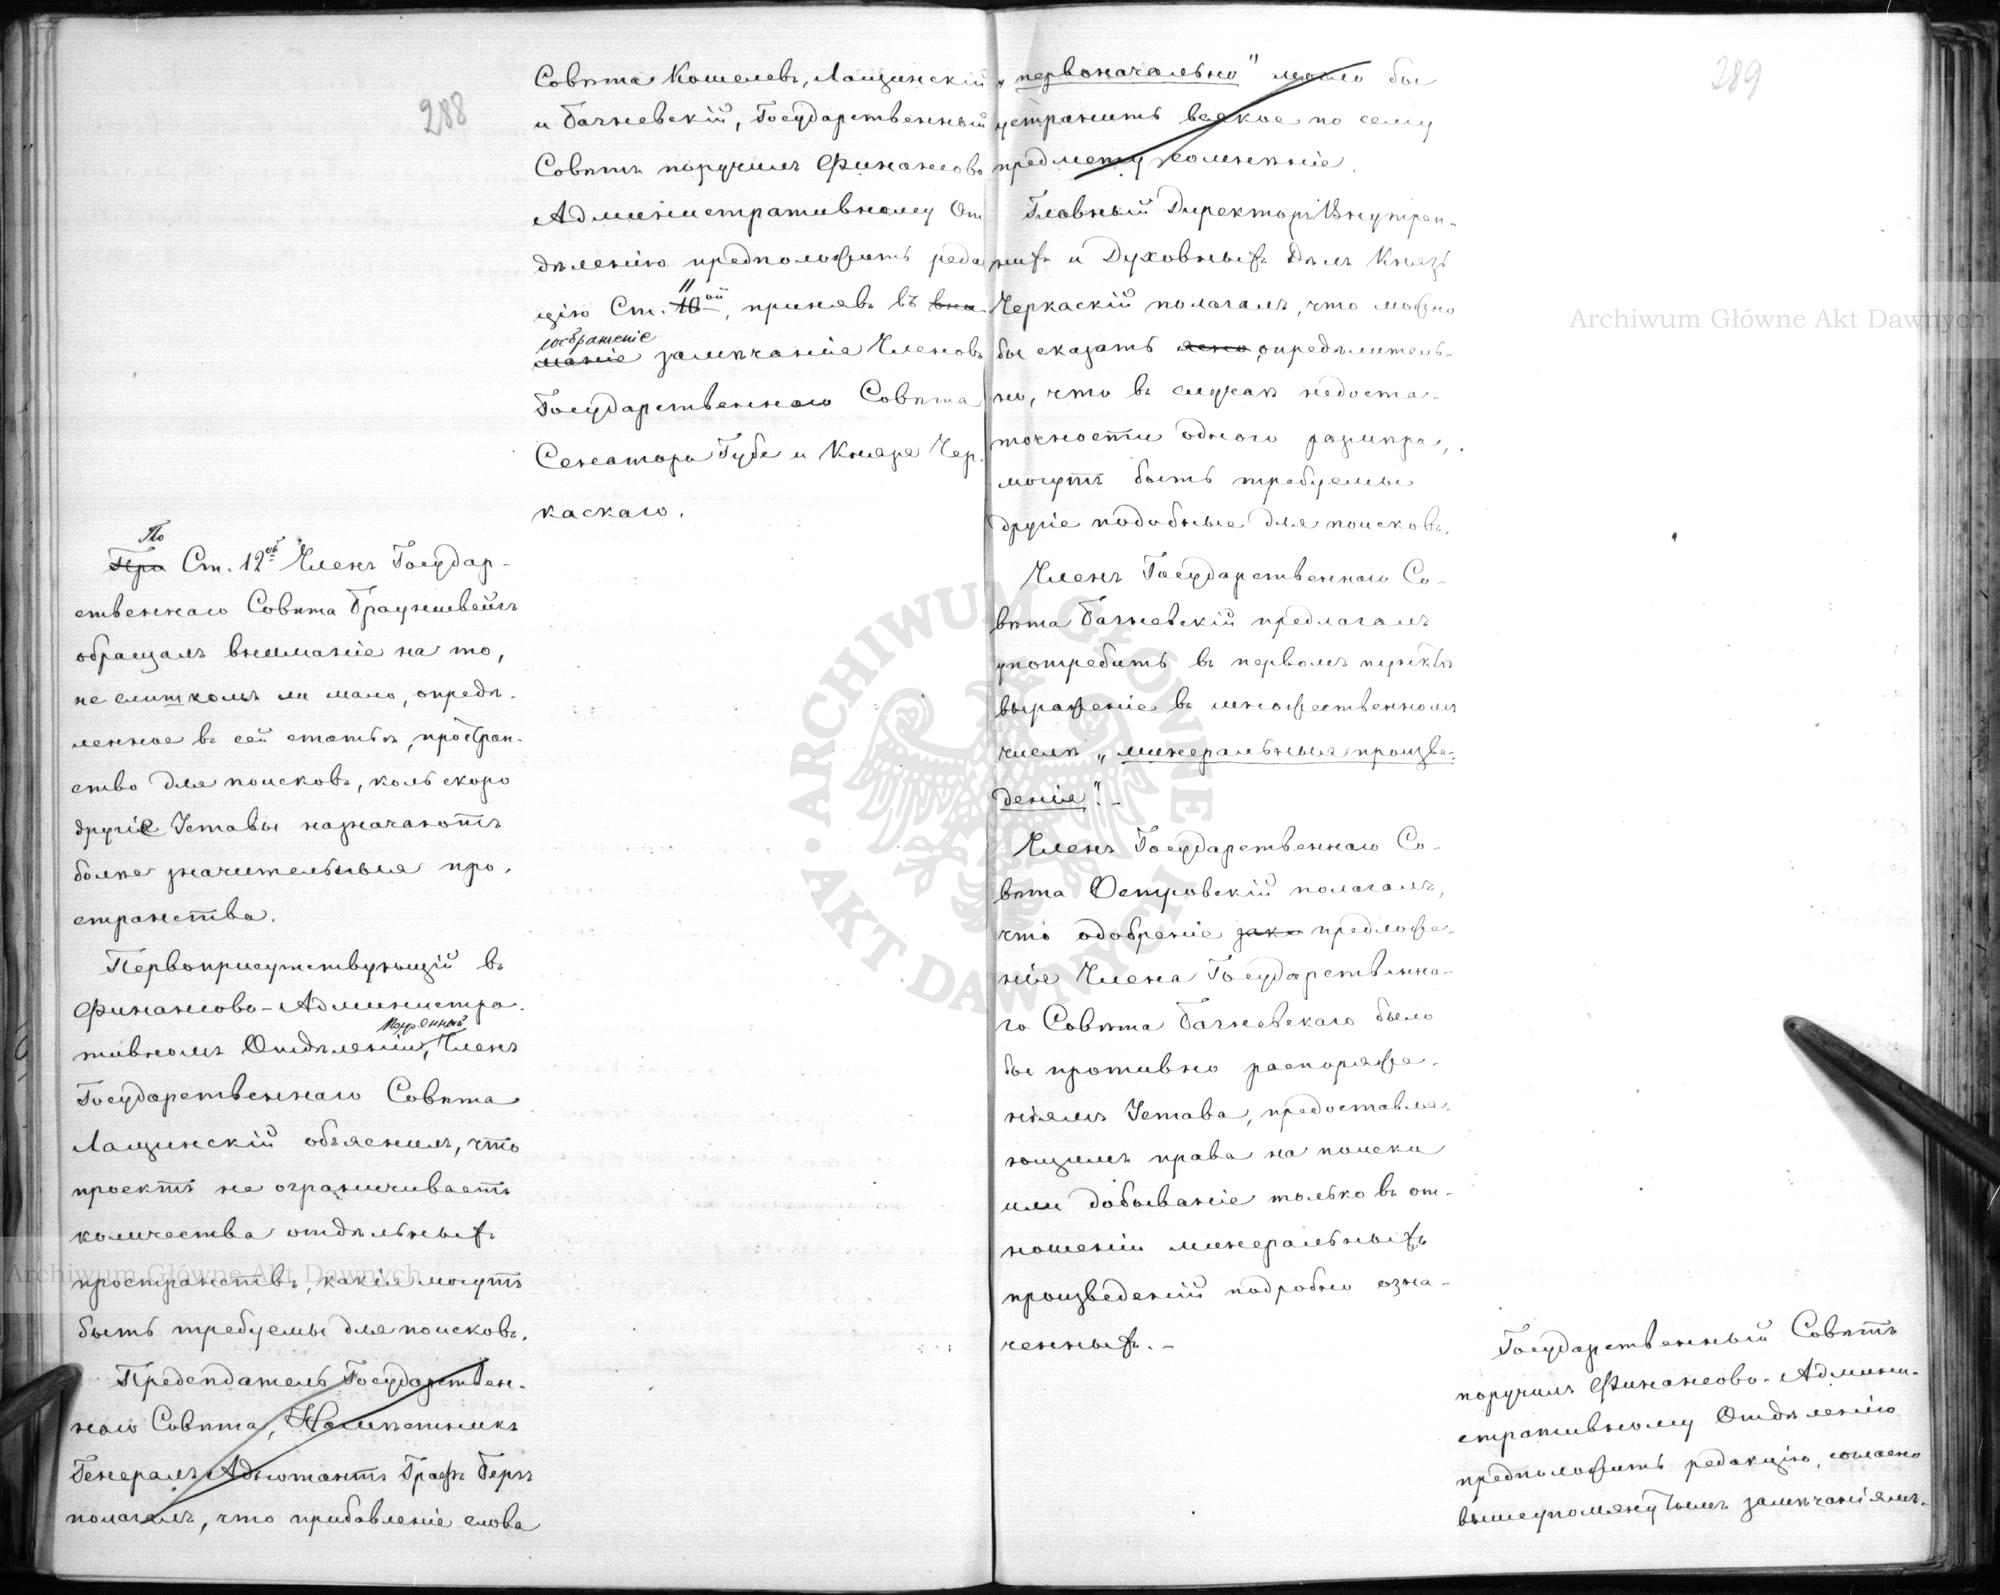 288
Совѣта Кошелевъ, Лащинскій
и Бачневскій, Государственный
Совѣтъ поручилъ Финансово
Административному От
дѣленію предположить редак
цію Ст. 10 11ой, принявъ въ вни
маніе соображеніе замѣчанія Членовъ
Государственнаго Совѣта
Сенатора Губе и Князя Чер-
каскаго.
По
При Ст. 12ой Членъ Государ-
ственнаго Совѣта Брауншвейгъ
обращалъ вниманіе на то,
не слишкомъ ли мало, опредѣ-
ленное въ сей статьѣ, простран-
ство для поисковъ, коль скоро
другіе Уставы назначаютъ
болѣе значительныя про-
странства.
Первоприсутствующій въ
Финансово-Администра-
тивномъ Отдѣленіи, Членъ
Государственнаго Совѣта
Лащинскій объяснилъ, что
проектъ не ограничиваетъ
количества отдѣльныхъ
пространствъ, какія могутъ
быть требуемы для поисковъ.
Предсѣдатель Государствен-
наго Совѣта, Намѣстникъ
Генералъ-Адъютантъ Графъ Бергъ
полагалъ, что прибавленіе слова
289
„первоначально" могло бы
устранить всякое по сему
предмету сомнѣніе.
Главный Директоръ Внутрен-
нихъ и Духовныхъ Дѣлъ Князь
Черкаскій полагалъ, что можно
бы сказать ясно опредѣлитель-
но, что въ случаѣ недоста-
точности одного размѣра,
могутъ быть требуемы
другіе подобные для поисковъ.
Членъ Государственнаго Со-
вѣта Бачневскій предлагалъ
употребить въ первомъ пунктѣ
выраженіе въ множественномъ
числѣ „минеральныя произве-
денія".-
Членъ Государственнаго Со-
вѣта Островскій полагалъ,
что одобреніе зако предложе-
нія Члена Государственна-
го Совѣта Бачневскаго было
бы противно распоряже-
ніямъ Устава, предоставля-
ющимъ права на поиски
или добываніе только въ от-
ношеніи минеральныхъ
произведеній подробно озна-
ченныхъ.-
Государственный Совѣтъ
поручилъ Финансово-Админи-
стративному Отдѣленію
предположить редакцію, согласно
вышеупомянутымъ замѣчаніямъ.
Archiwum Główne Akt Dawnych
Archiwum Główne Akt Dawnych
ARCHIWUM GŁÓWNE · AKT DAWNYCH